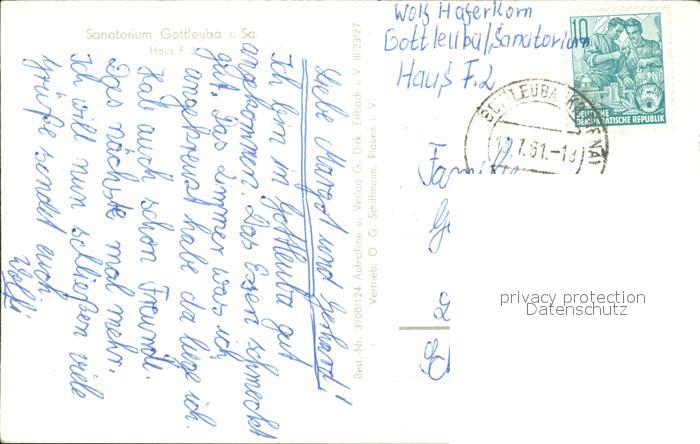 Sanatorium Gottleuba i. Sa.
Haus F 2
Liebe Margot und Gerhard!
Ich bin in Gottleuba gut
angekommen. Das Essen schmeckt
gut. Das Zimmer was ich
angekreuzt habe da liege ich.
Hab auch schon Freunde.
Das nächste mal mehr.
Ich will nun schließen viele
Grüße sendet euch
Wolf
Best.-Nr. 3700/124 Aufnahme u. Verlag G. Dick, Erlbach i. V. III/23/27
Vertrieb: O. G. Schiffmann, Plauen i. V.
Wolf Haferkorn
Gottleuba/Sanatorium
Hauß F.2
10
5
DEUTSCHE
DEMOKRATISCHE REPUBLIK
GOTTLEUBA
.7.61.-18
Familie
privacy protection
Datenschutz